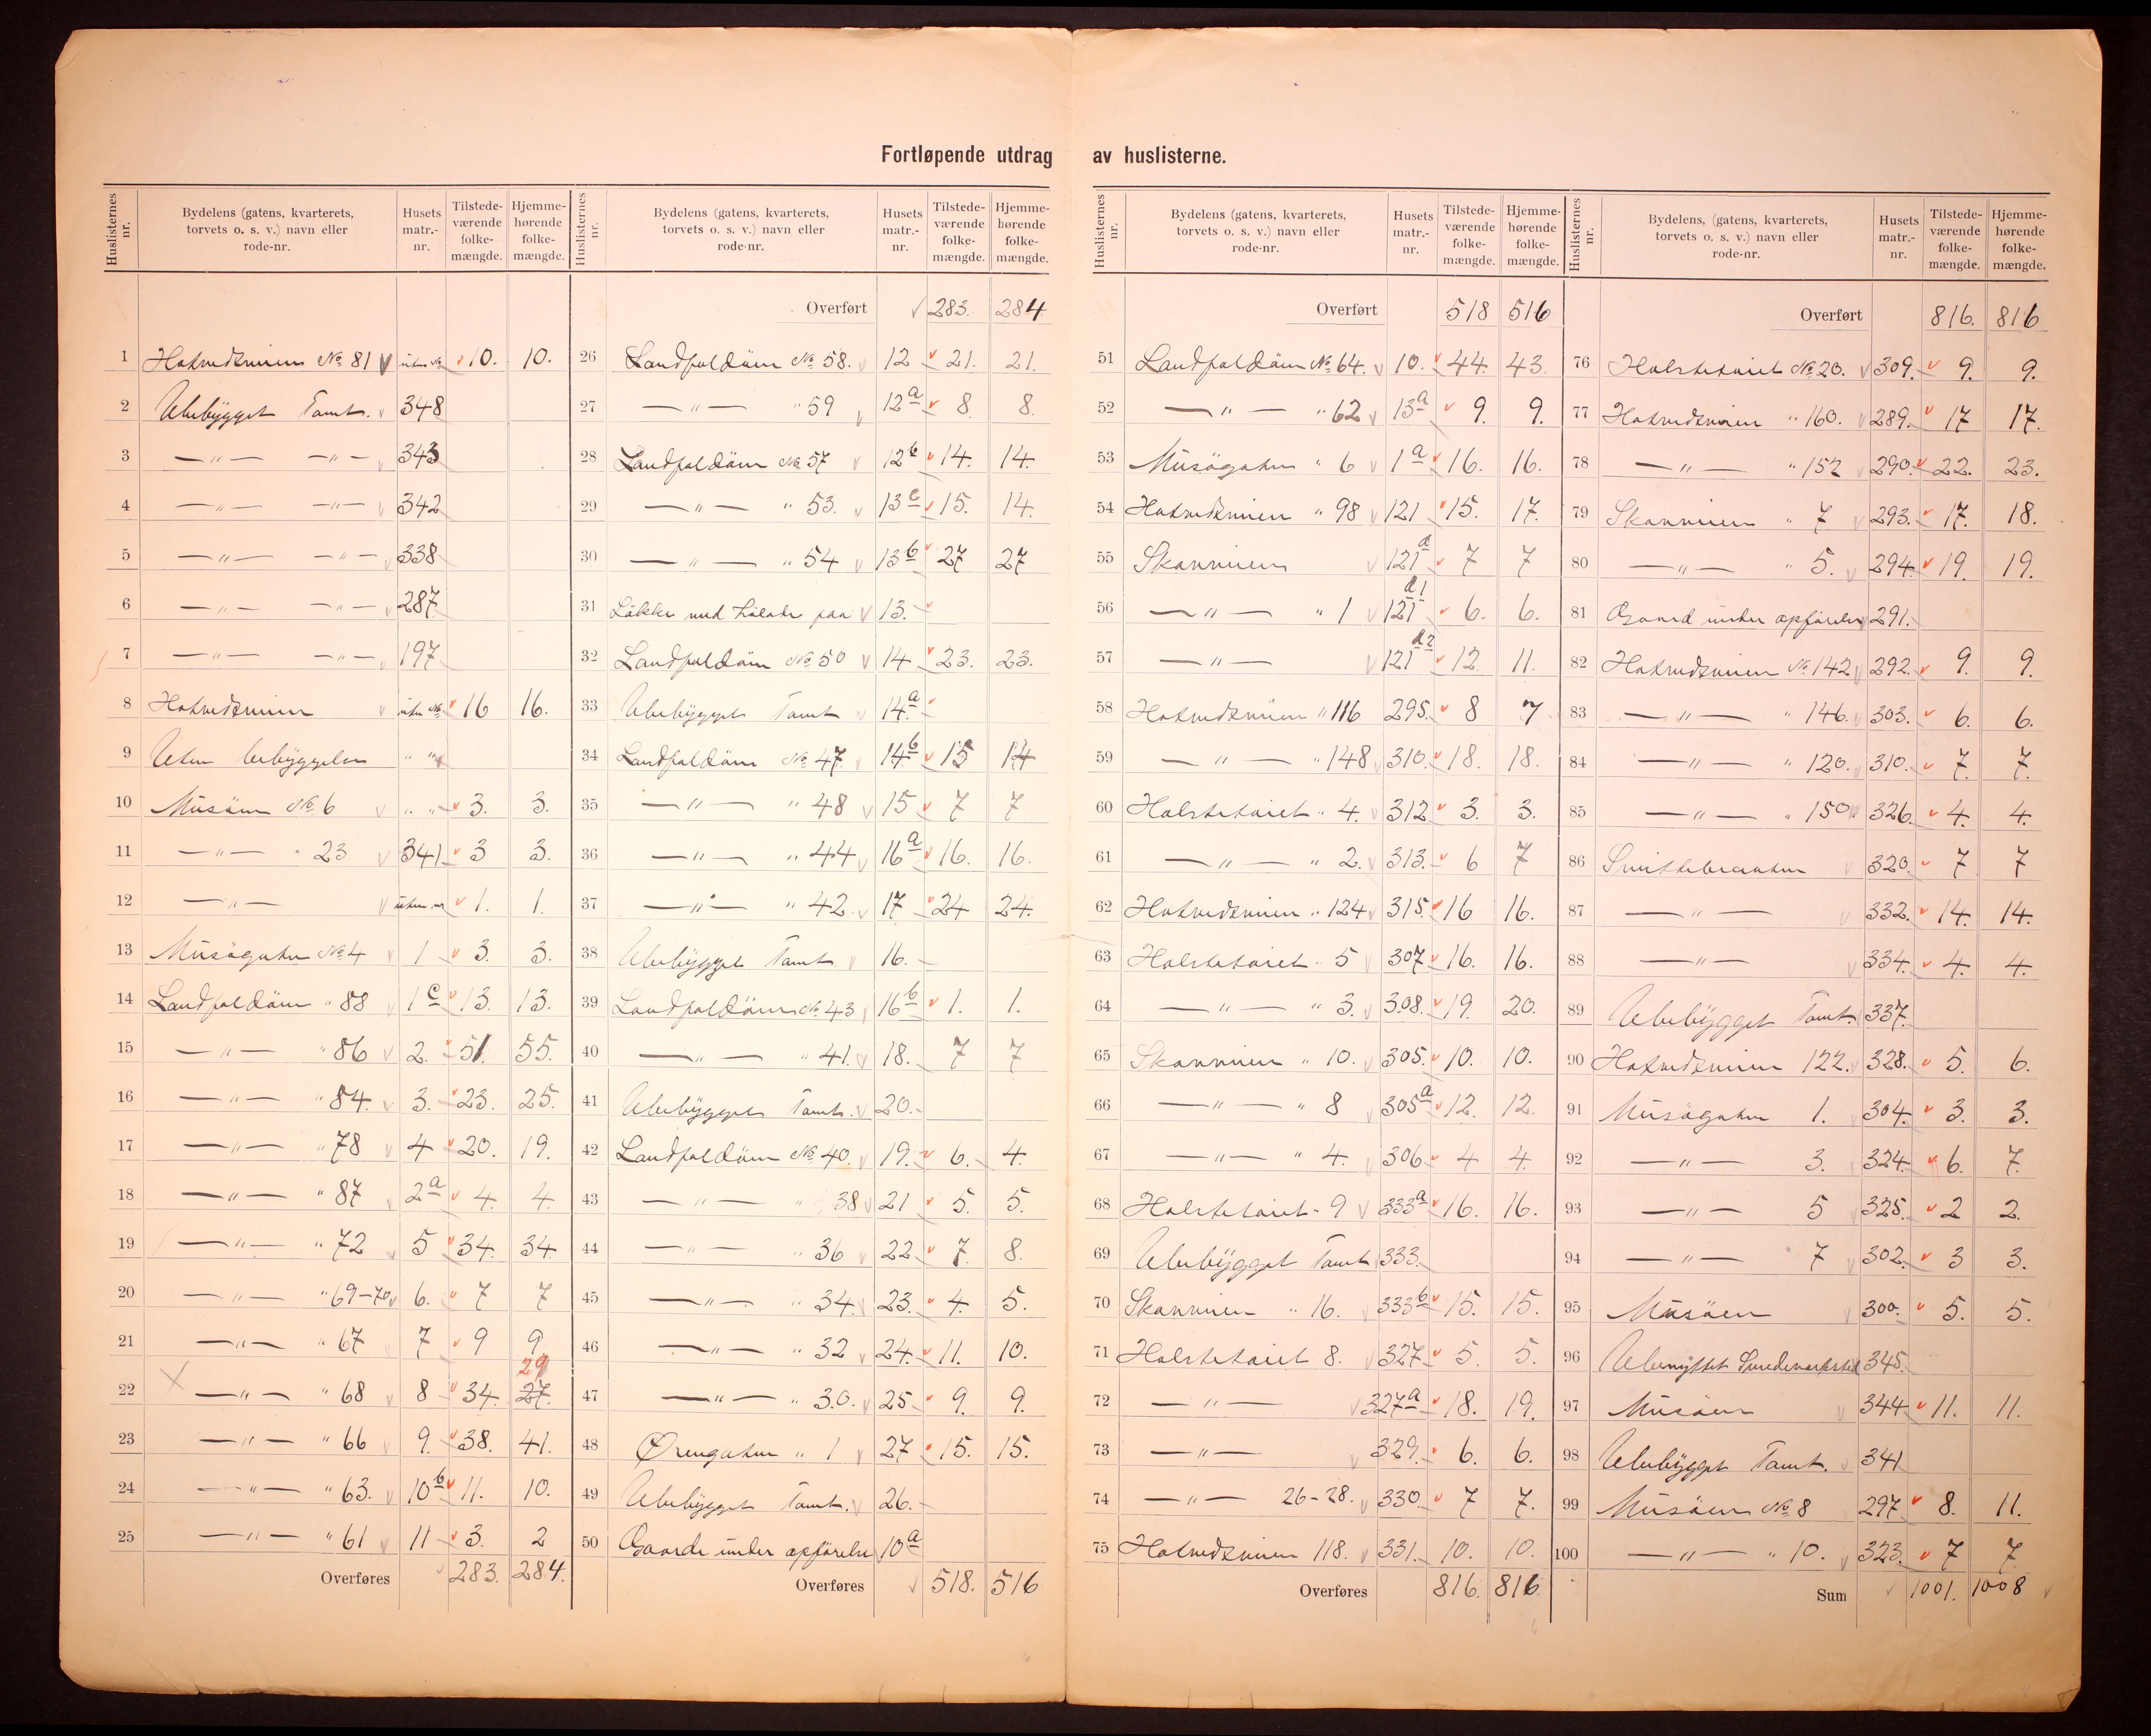 Fortløpende utdrag av huslisterne.
Huslisternes nr. | Bydelens (gatens, kvarterets, torvets o. s. v.) navn eller rode-nr. | Husets matr.-nr. | Tilstede-værende folke-mængde. | Hjemme-hørende folke-mængde.
1 Hotvedtveien No. 81 uten No. 10. 10.
2 Ubebygget Tomt. 348
3 —"— —"— 343
4 —"— —"— 342
5 —"— —"— 338
6 —"— —"— 287
7 —"— —"— 197
8 Hotvedtveien uten No. 16 16.
9 Uten bebyggelse " "
10 Musöen No. 6 " " 3. 3.
11 —"— " 23 341 3 3.
12 —"— uten nr 1. 1.
13 Musögaten No. 4 1 3. 3.
14 Landfaldöen " 88 1c 13. 13.
15 —"— " 86 2. 51. 55.
16 —"— " 84. 3. 23. 25.
17 —"— " 78 4 20. 19.
18 —"— " 87 2a 4. 4.
19 —"— " 72 5 34. 34
20 —"— " 69-70 6. 7 7
21 —"— " 67 7 9 9
22 —"— " 68 8 34. 27. 29
23 —"— " 66 9. 38. 41.
24 —"— " 63. 10b 11. 10.
25 —"— " 61 11 3. 2
Overføres 283. 284.
Huslisternes nr. | Bydelens (gatens, kvarterets, torvets o. s. v.) navn eller rode-nr. | Husets matr.-nr. | Tilstede-værende folke-mængde. | Hjemme-hørende folke-mængde.
Overført 283. 284
26 Landfaldöen No. 58. 12 21. 21.
27 —"— " 59 12a 8 8.
28 Landfaldöen No. 57 12b 14. 14.
29 —"— " 53. 13c 15. 14.
30 —"— " 54 13b 27 27
31 Løkke med Lølade paa 13.
32 Landfaldöen No. 50 14 23. 23.
33 Ubebygget Tomt 14a
34 Landfaldöen No. 47. 14b 15 14
35 —"— " 48 15 7 7
36 —"— " 44 16a 16. 16.
37 —"— " 42. 17 24 24.
38 Ubebygget Tomt 16.
39 Landfaldöen No. 43 16b 1. 1.
40 —"— " 41. 18. 7 7
41 Ubebygget Tomt. 20.
42 Landfaldöen No. 40. 19. 6. 4.
43 —"— " 38 21 5. 5.
44 —"— " 36 22 7. 8.
45 —"— " 34. 23. 4. 5.
46 —"— " 32 24. 11. 10.
47 —"— " 30. 25 9. 9.
48 Ørengaten " 1 27 15. 15.
49 Ubebygget Tomt. 26.
50 Gaarde under opførelse 10a
Overføres 518. 516
Huslisternes nr. | Bydelens (gatens, kvarterets, torvets o. s. v.) navn eller rode-nr. | Husets matr.-nr. | Tilstede-værende folke-mængde. | Hjemme-hørende folke-mængde.
Overført 518 516
51 Landfaldöen No. 64. 10. 44. 43.
52 —"— " 62 13a 9. 9.
53 Musögaten " 6 1a 16. 16.
54 Hotvedtveien " 98 121 15. 17.
55 Skanveien 121d 7 7
56 —"— " 1 121d1 6. 6.
57 —"— 121d2 12. 11.
58 Hotvedtveien " 116 295. 8 7
59 —"— " 148 310. 18. 18.
60 Holstetøiet " 4. 312 3. 3.
61 —"— " 2. 313. 6 7
62 Hotvedtveien " 124 315. 16 16.
63 Holstetøiet " 5 307 16. 16.
64 —"— " 3. 308. 19. 20.
65 Skanveien " 10. 305. 10. 10.
66 —"— " 8 305a 12. 12.
67 —"— " 4. 306 4 4.
68 Holstetøiet " 9 333a 16. 16.
69 Ubebygget Tomt 333.
70 Skanveien " 16. 333b 15. 15.
71 Holstetøiet 8. 327 5. 5.
72 —"— 327a 18. 19.
73 —"— 329. 6. 6.
74 —"— 26-28. 330. 7 7.
75 Hotvedtveien 118. 331. 10. 10.
Overføres 816. 816
Huslisternes nr. | Bydelens, (gatens, kvarterets, torvets o. s. v.) navn eller rode-nr. | Husets matr.-nr. | Tilstede-værende folke-mængde. | Hjemme-hørende folke-mængde.
Overført 816. 816
76 Holstetøiet No. 20. 309. 9. 9.
77 Hotvedtveien " 160. 289. 17 17.
78 —"— " 152 290. 22. 23.
79 Skanveien " 7 293. 17. 18.
80 —"— " 5. 294. 19. 19.
81 Gaard under opførelse 291.
82 Hotvedtveien No. 142 292. 9. 9.
83 —"— " 146. 303. 6. 6.
84 —"— " 120. 310. 7. 7.
85 —"— " 150 326. 4. 4.
86 Smittebraaten 320. 7 7
87 —"— 332. 14. 14.
88 —"— 334. 4. 4.
89 Ubebygget Tomt. 337.
90 Hotvedtveien 122. 328. 5. 6.
91 Musögaten 1. 304. 3. 3.
92 —"— 3. 324. 6. 7.
93 —"— 5 325. 2 2.
94 —"— " 7 302. 3 3.
95 Musöen 300. 5. 5.
96 Ubenyttet Smedeverksted 345.
97 Musöen 344 11. 11.
98 Ubebygget Tomt. 341
99 Musöen No. 8 297 8. 11.
100 —"— " 10. 323. 7 7
Sum 1001. 1008